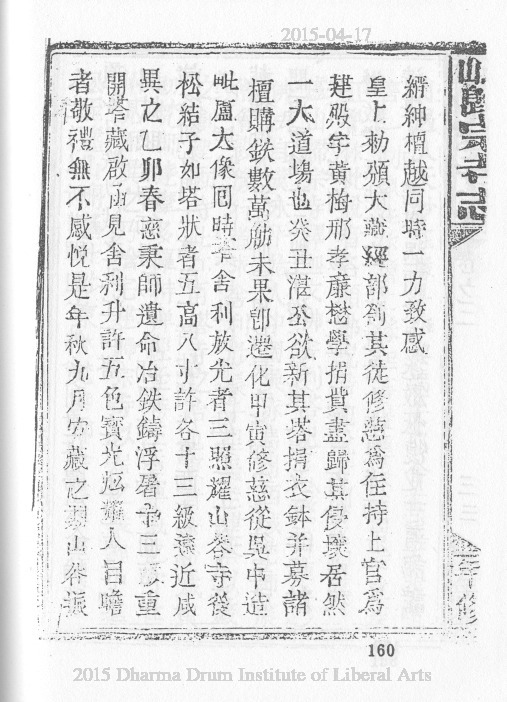 2015-04-17
縉紳檀越同時一力致感
皇上勅頒大藏經部剳其徒修慈為住持上官為
建殿宇黃梅邢孝廉懋學捐貲盡歸其侵壤居然
一大道塲也癸丑湛公欲新其塔捐衣鉢并募諸
檀購鉄數萬觔未果卽遷化甲寅修慈從吳中造
毗盧大像囘時 舍利放光者三照耀山谷寺後
松結子如塔狀者五高八寸許各十三級遠近咸
異之乙卯春慈秉師遺命冶鉄鑄浮屠 三 重
開塔藏啟函見舍利升許五色寶光炫耀人目瞻
者敬禮無不感悅是年秋九月安藏之 山谷振
年修
160
2015 Dharma Drum Institute of Liberal Arts